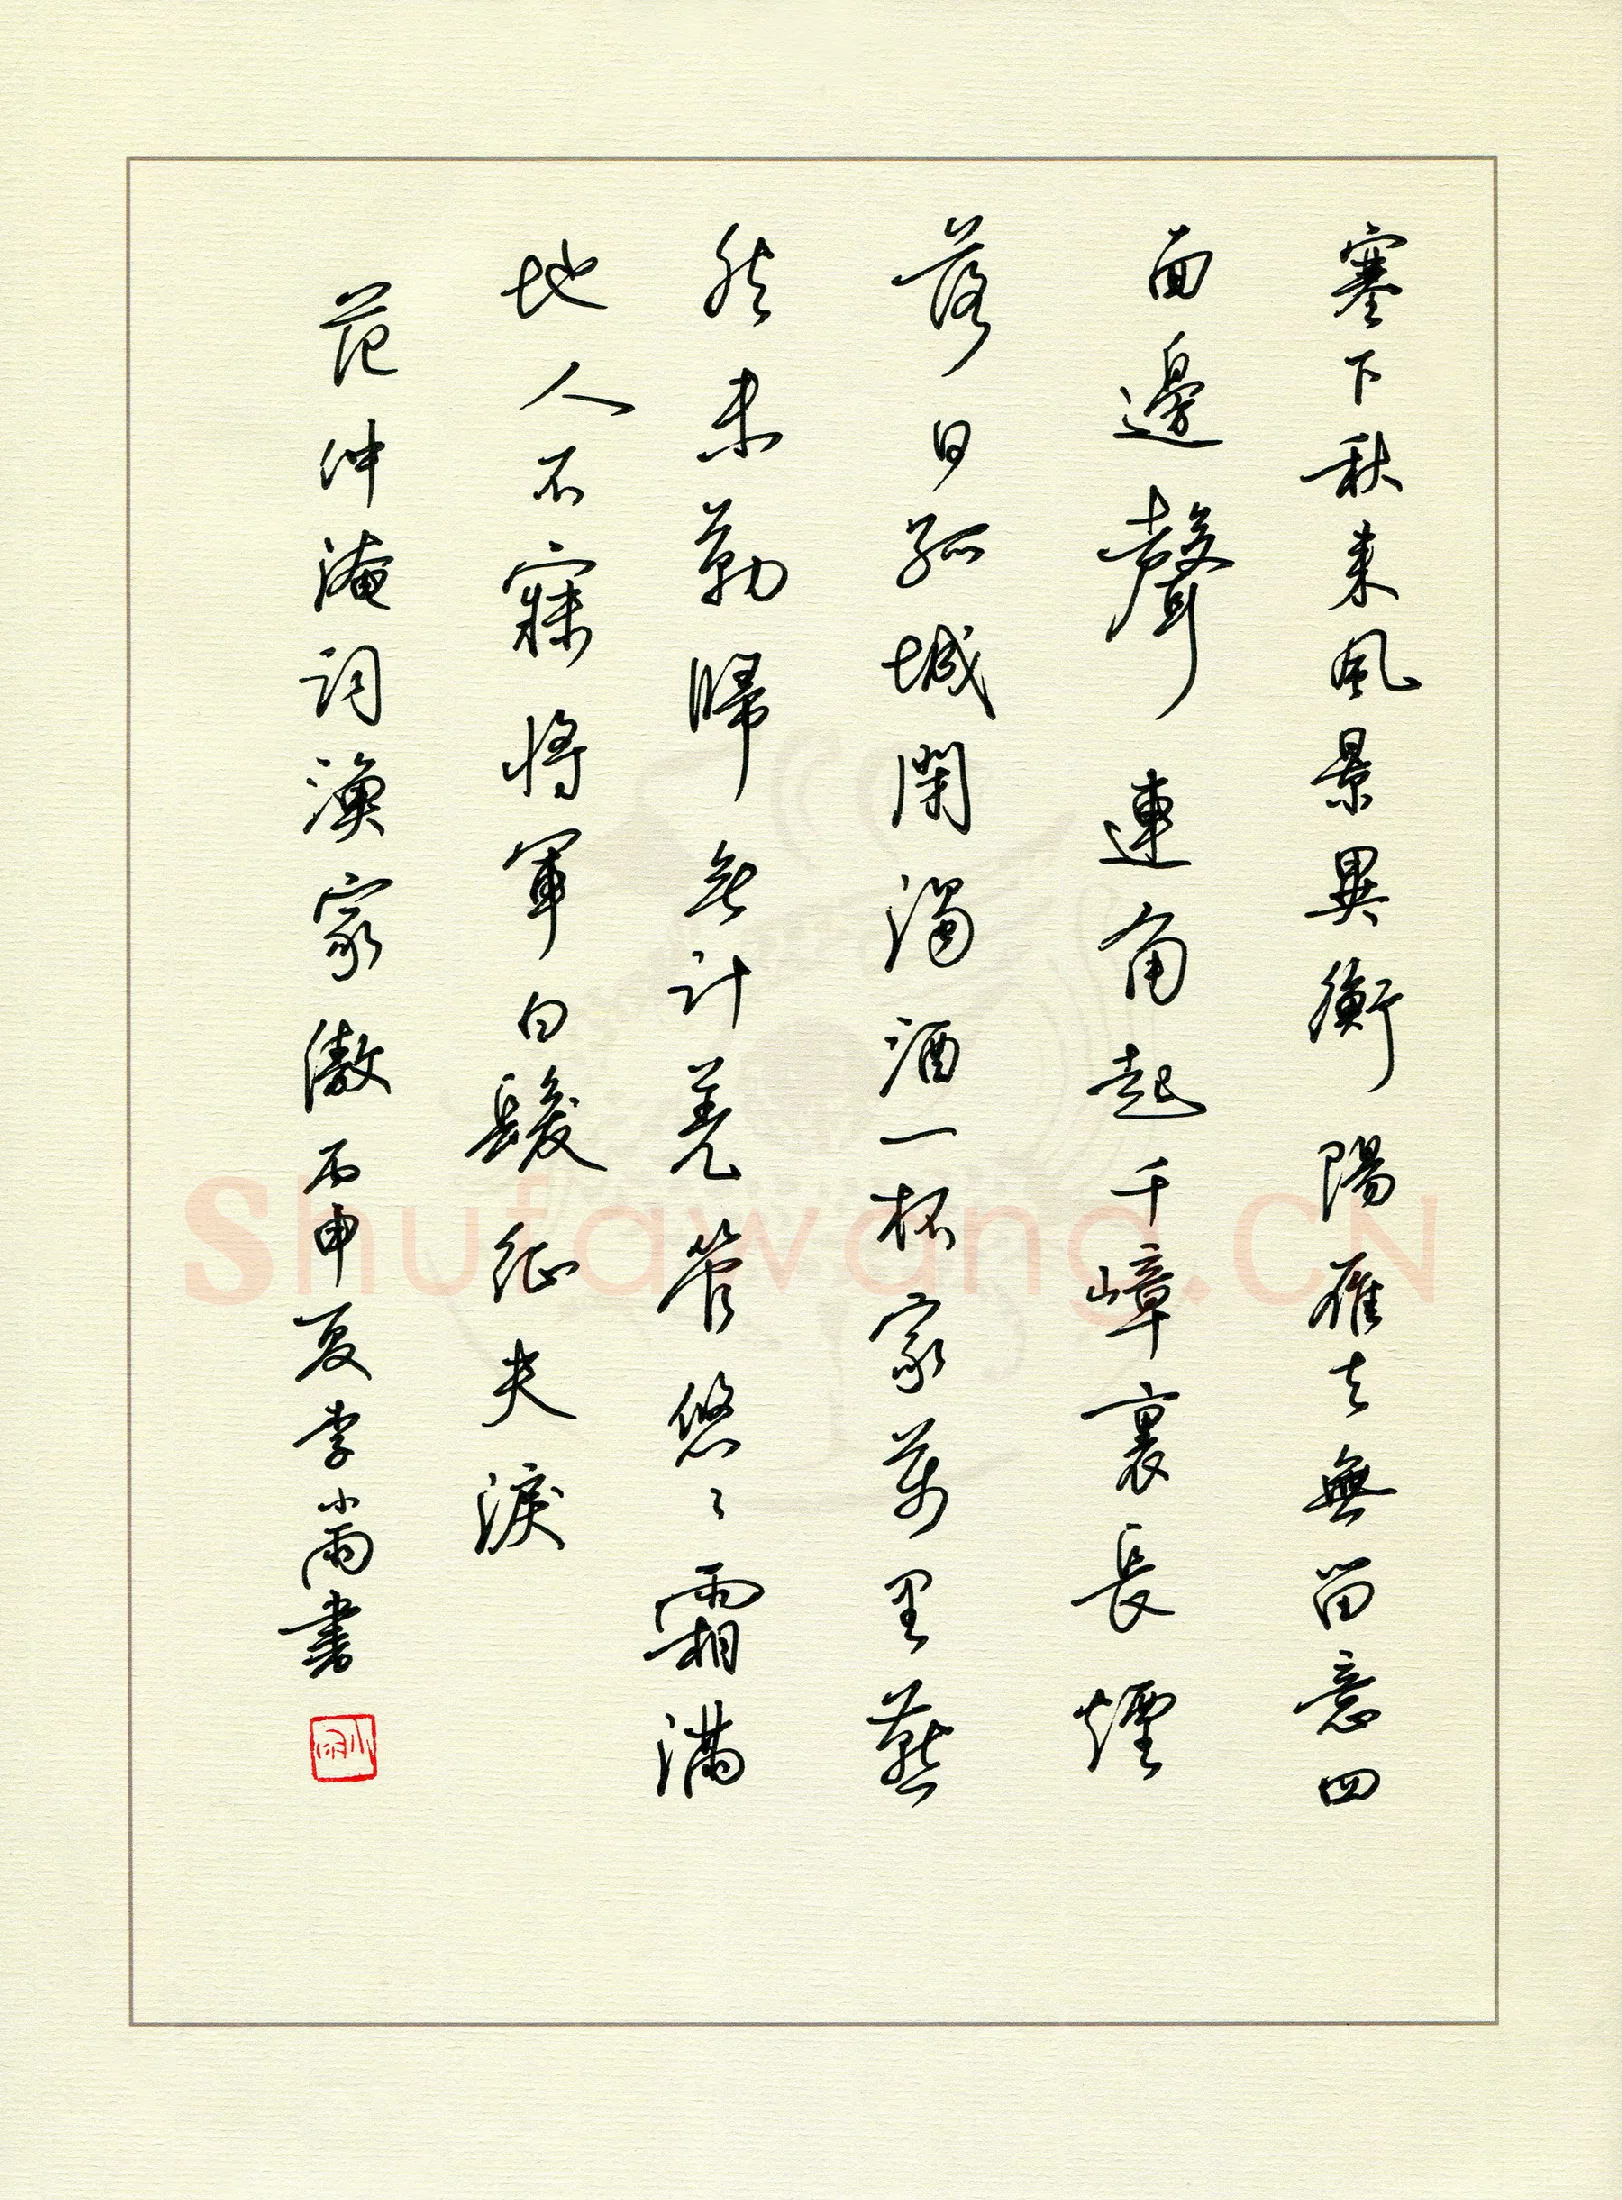 塞下秋来風景異衡陽雁去無留意四
面邊聲連角起千嶂裏長煙
落日孤城閉濁酒一杯家萬里燕
然未勒歸無計羌管悠々霜滿
地人不寐將軍白髮征夫淚
范仲淹詞漁家傲丙申夏李小雨書
小雨
Shufawang.CN